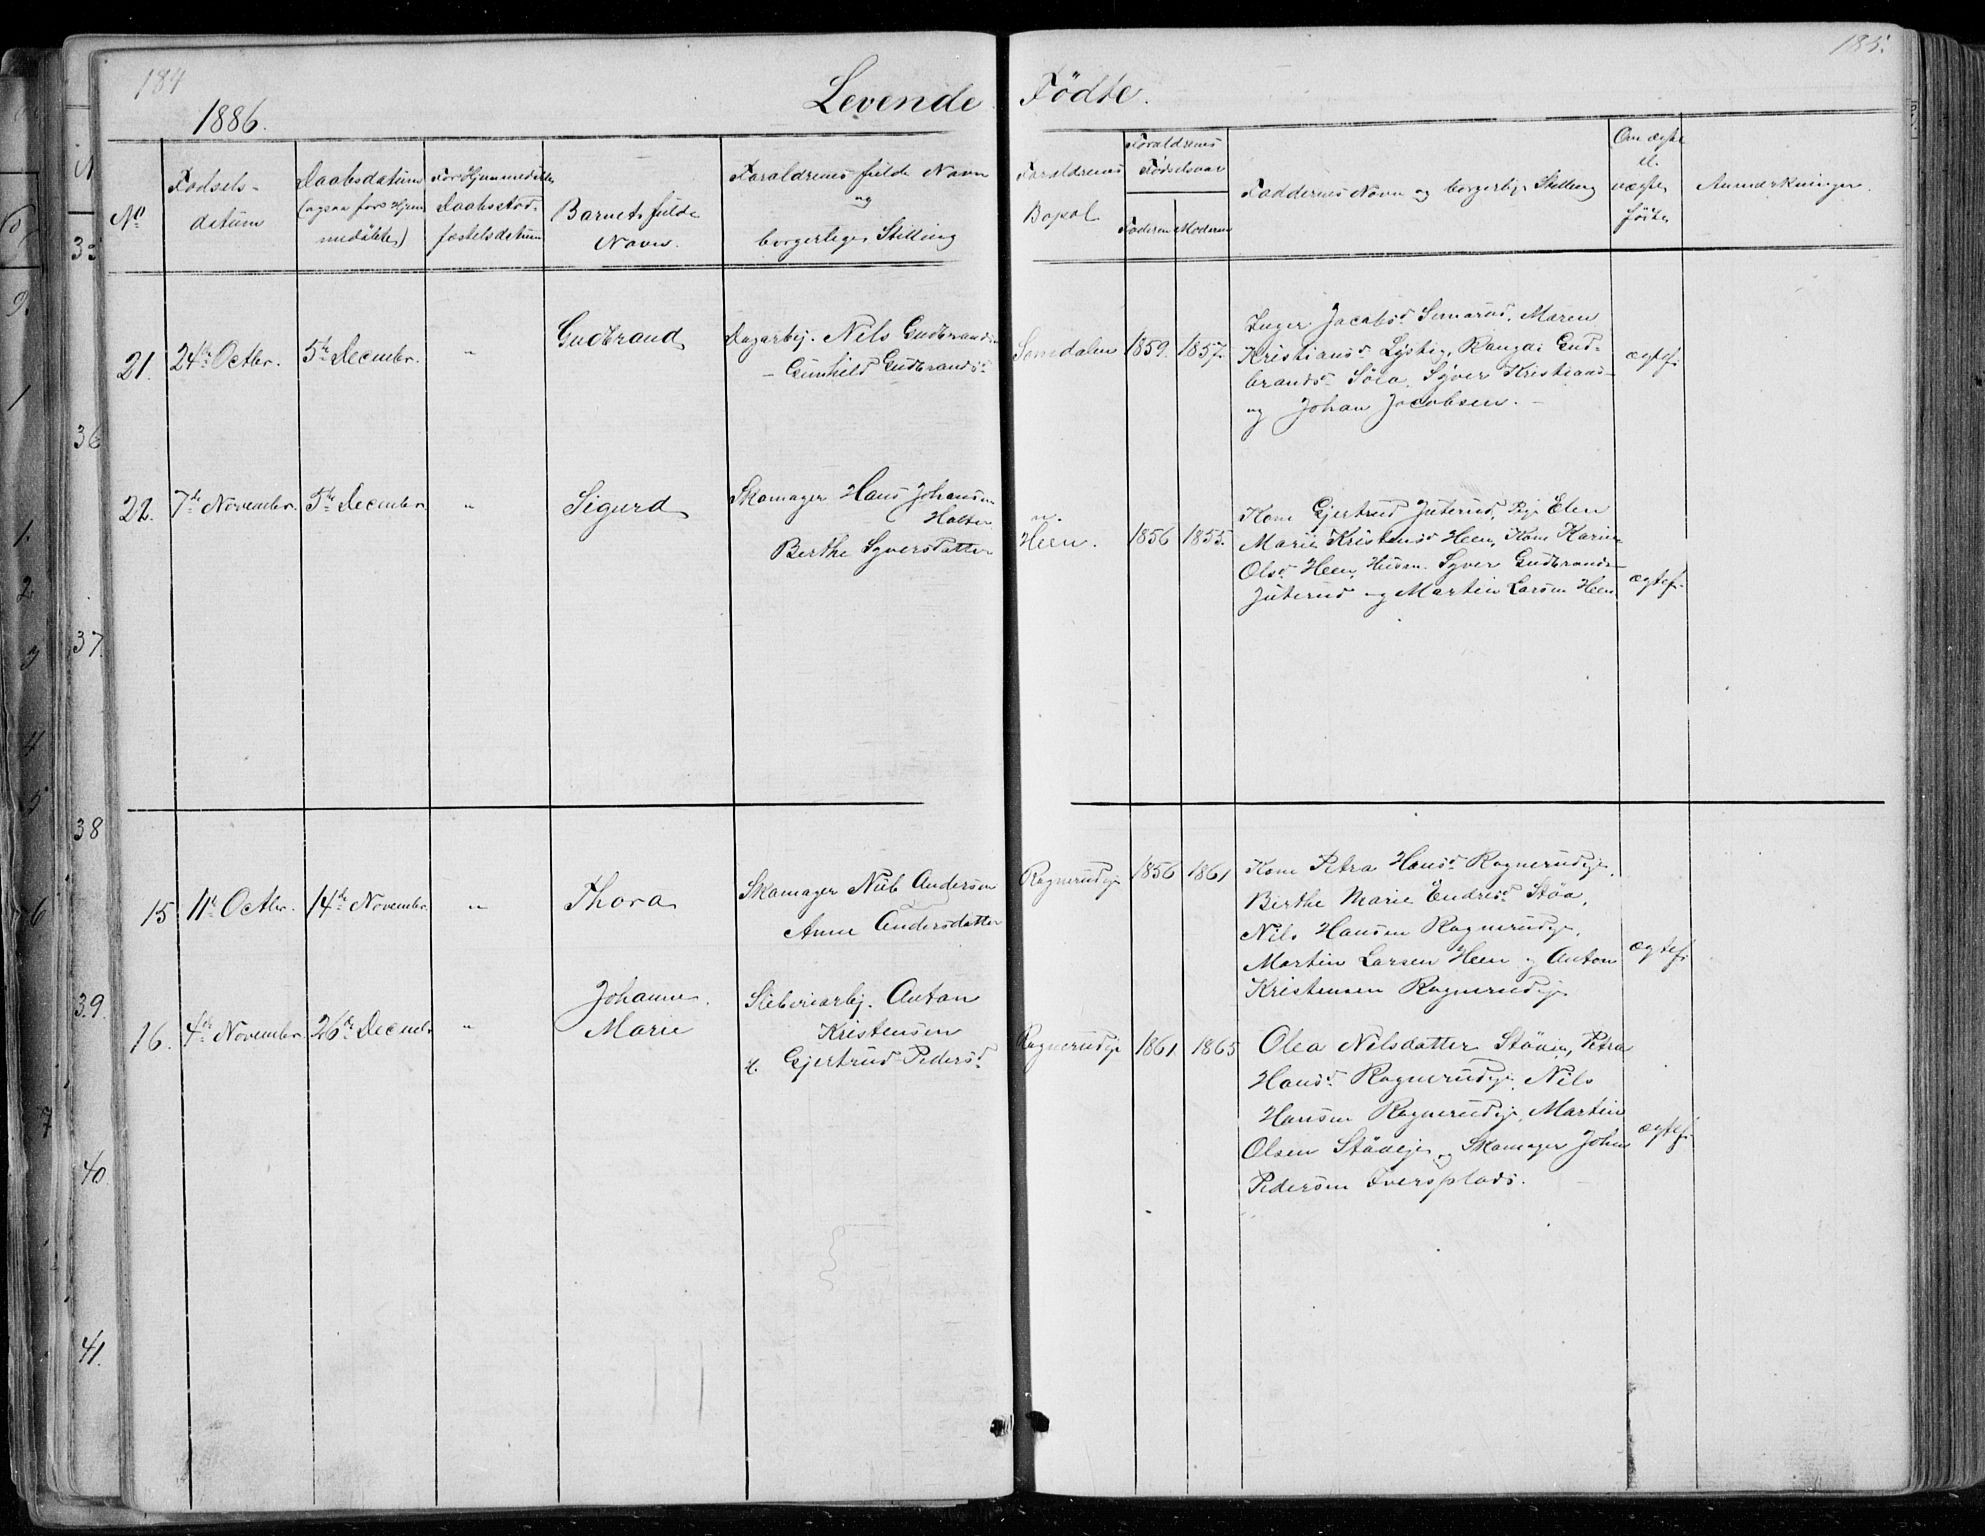 184
185.
1886.
Levende Fødte.
No
Fødsels-
datum
Daabsdatum
(ogsaa for Hjem
medøbte)
For Hjemmedøbte
Daabsstad-
fæstelsdatum
Barnets fulde
Navn.
Forældrenes fulde Navn
og
borgerlige Stilling
Forældrenes
Bopæl
Forældrenes
Fødselsaar
Faderens Moderens
Faddernes Navn og borgerlige Stilling
Om ægte
el.
uægte
fødte
Anmærkninger.
21. 24de Octbr. 5te Decembr. " Gudbrand
Dagarbej. Nils Gudbrands
Gunhild Gudbrandsd
Somdalen 1859. 1857.
Inger Jacobsd Semerud, Maren
Kristiansd Lystig, Rangdi Gud-
brandsd Søla, Syver Kristians-
og Johan Jacobsen. -
ægtef.
22. 7de Novembr. 5te Decembr. " Sigurd
Skomager Hans Johansen
Halten
Berthe Syversdatter
n.
Heen. 1856 1855.
Kone Gjertrud Juterud, Pige Elen
Marie Kristensd Heen, Kone Karin
Olsd Heen, Husm. Syver Gudbrands-
Juterud og Martin Larsen Heen
ægtef.
15 11te Octbr. 14de Novembr. " Thora
Skomager Nils Andersen
Anne Andersdatter
Rognerudeje 1856 1861
Kone Petra Hansd Rognerudeje,
Berthe Marie Endresd Støa,
Nils Hansen Rognerudeje,
Martin Larsen Heen og Anton
Kristensen Rognerudeje
ægtef.
16. 4de Novembr. 26de Decembr " Johanne
Marie
Sliberiarbj. Anton
Kristensen
H. Gjertrud Pedersd
Rognerudeje 1861. 1865
Olea Nilsdatter Støeje, Petra
Hansd Rognerudeje, Nils
Hansen Rognerudeje, Martin
Olsen Støaeje og Skomager Johan
Pedersen Iversplads.
ægtef.
36
37.
38
39.
40
41.
1
1.
2
3
4
5
6
7